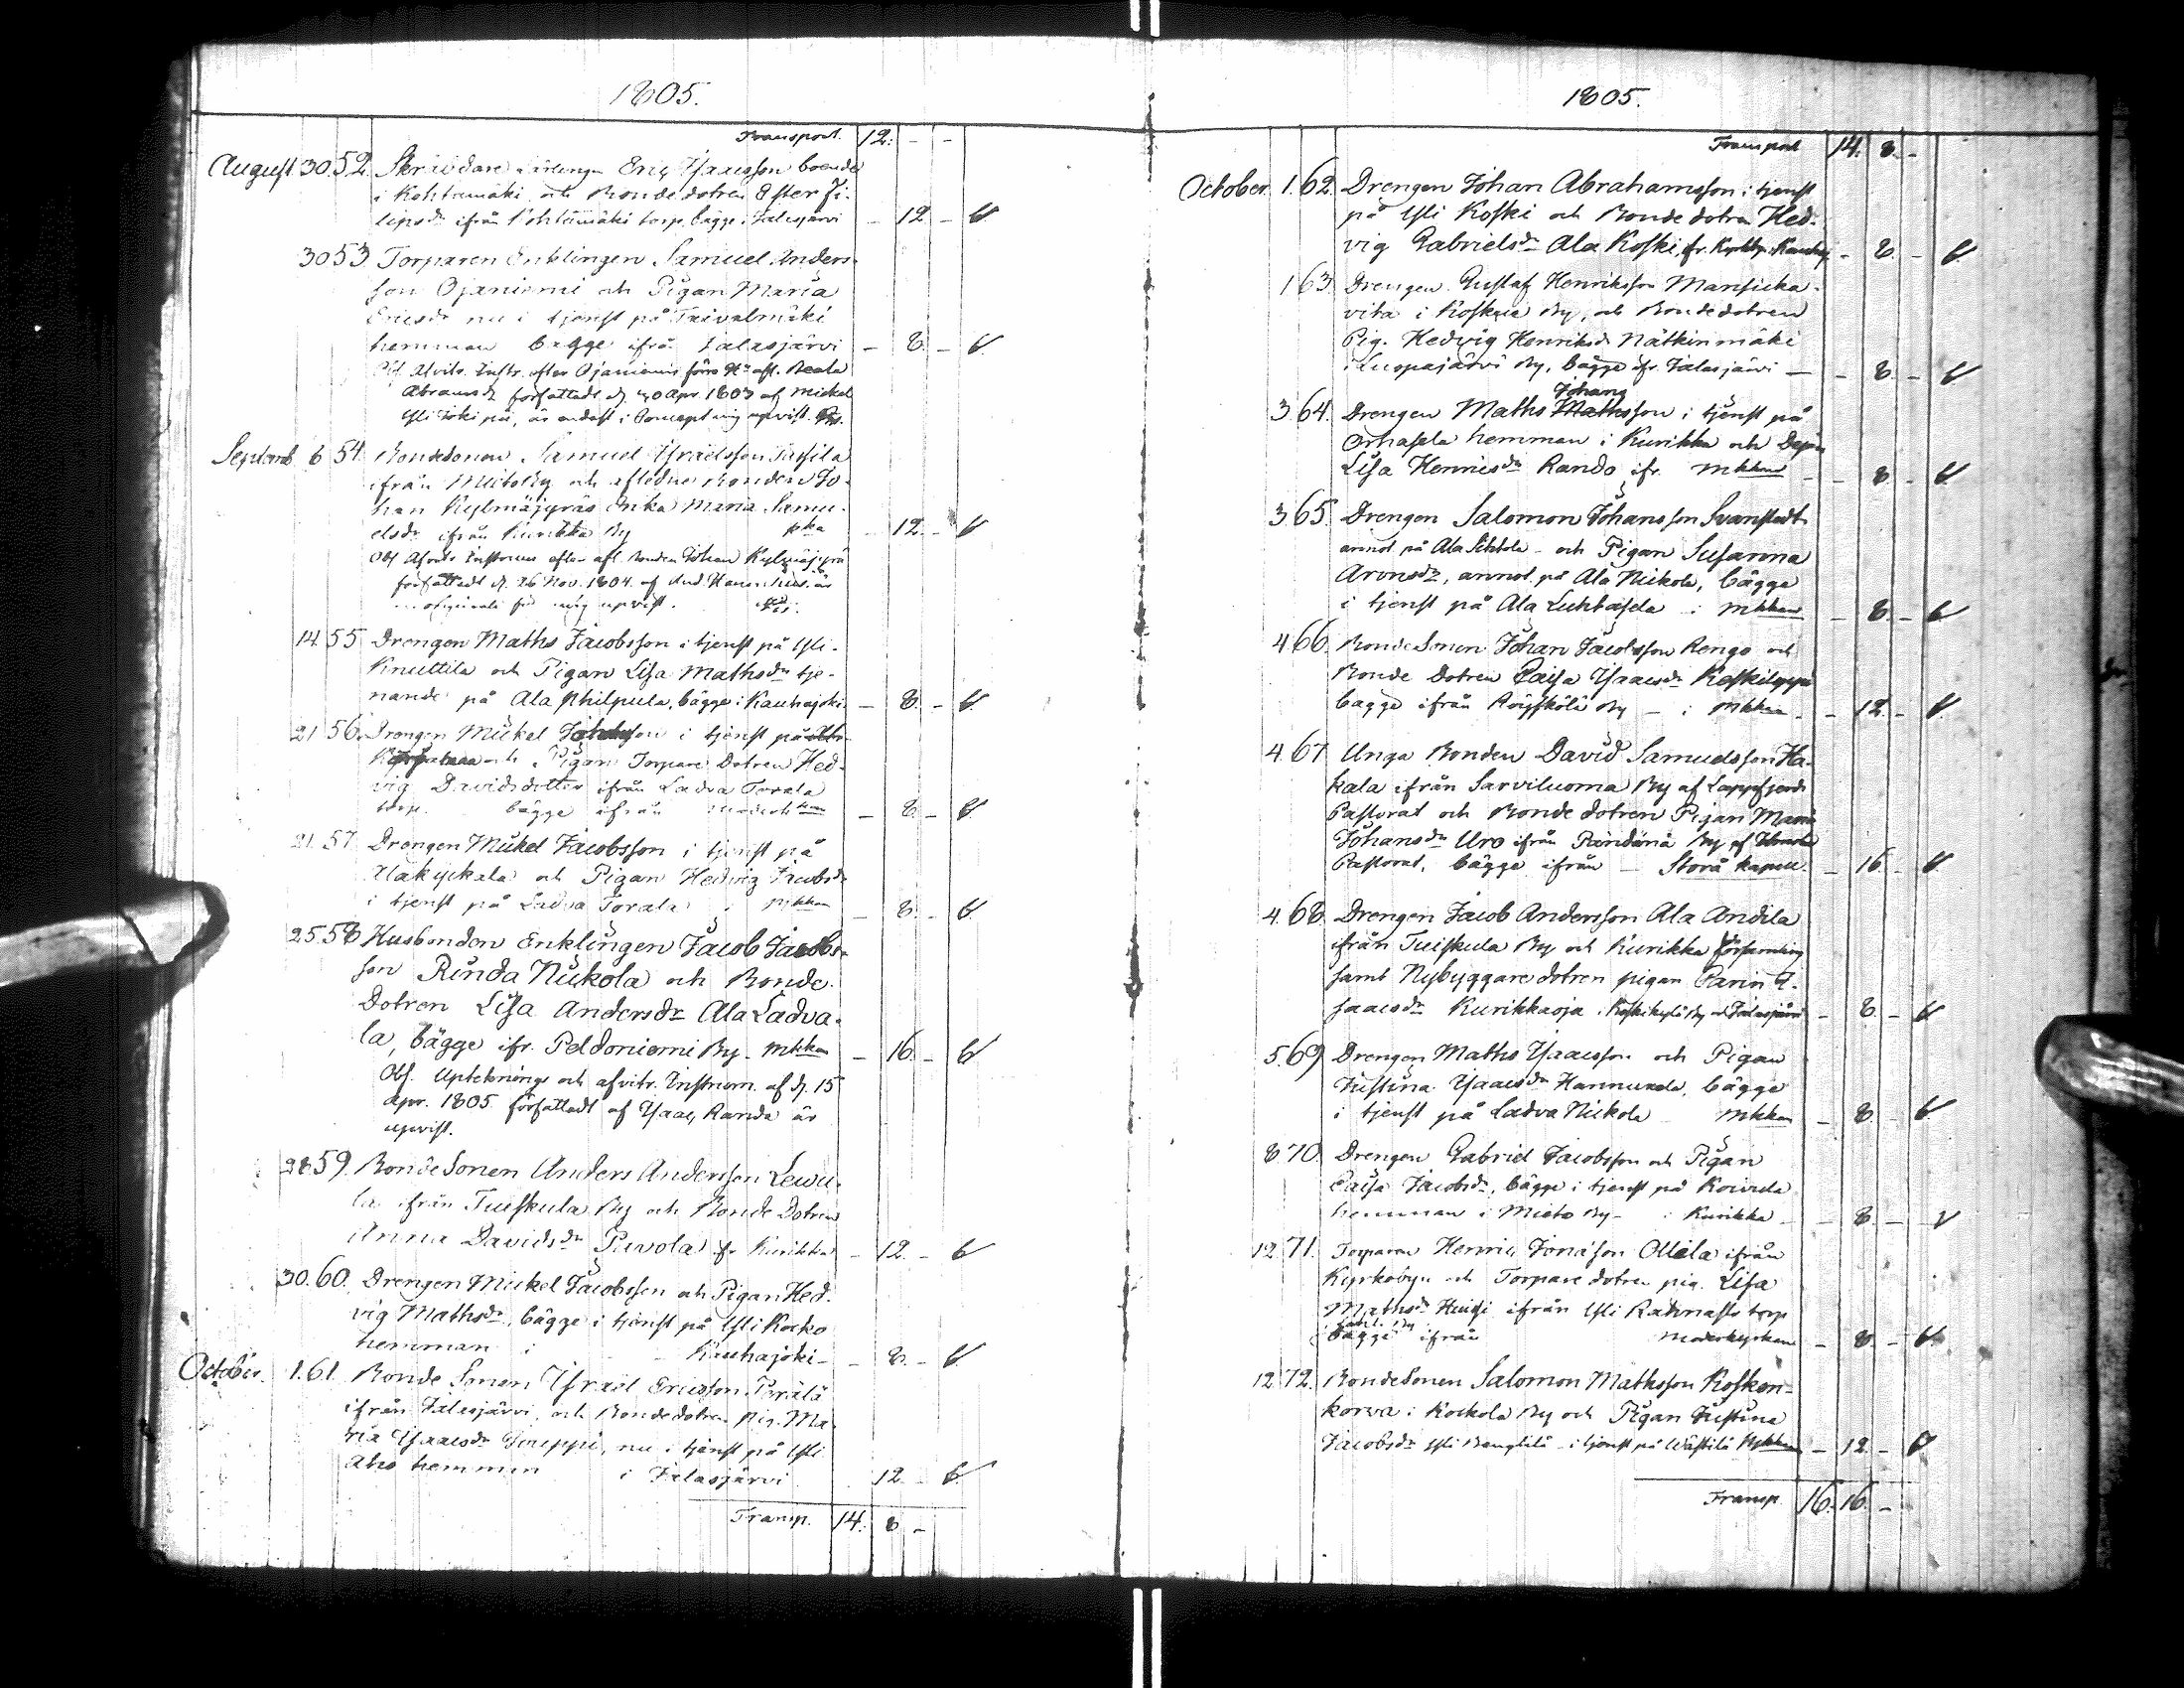 1805.
Transport. 12. - -
August 30. 52. Skräddare Eric Isaacsson boende
i Kohtamäki och Bonde dotren Ester Fi-
lipsdr ifrån Kohtamäki torp, bägge i Jalasjärvi - 12 -
30 53 Torparen Enklingen Samuel Anders-
son Ojaniemi och Pigan Maria
Ericsdr nu i tjenst på Taivalmäki
hemman bägge ifrån Jalasjärvi - 8 -
Obs. Afvitr. Instr. efter Ojaniemis förra H. afl. Beata
Abramsdr författadt d. 30 Apr. 1803 af Michel
Yli Joki på, är endast i Concept mig upvist.
Septemb. 6 54. Bondesonen Samuel Israelsson Jussila
ifrån Mietoby och afledne Bonden Jo-
han Kylmäjyräs Enka Maria Samu-
elsdr ifrån Kurikka By - 12 -
Obs. Afvitr. Instrum. efter afl. Bonden Johan Kylmäjyrä
författadt d. 26 Nov. 1804 af And. är
för mig upvist.
14. 55 Drengen Maths Jacobsson i tjenst på Yli-
Knuttila och Pigan Lisa Mathsdr tje-
nande på Ala Philpula, bägge i Kauhajoki. - 8 -
21 56. Drengen Mickel i tjenst på
och Pigan Torpare Dotren Hed-
vig Davidsdotter ifrån Ladva Torala
torp. bägge ifrån - 8 -
21. 57. Drengen Mickel Jacobsson i tjenst på
och Pigan Hedvig Jacobsdr
i tjenst på Ladva Torala i - 8 -
25. 58 Husbonden Enklingen Jacob Jacobs-
son Rinda Nickola och Bonde
Dotren Lisa Andersdr Ala Ladva-
la, bägge ifr. Peldoniemi By - 16. -
Obs. Upteknings och afvitr. Instrum. af d. 15
Apr. 1805 författadt af Isaac Randa är
upvist.
28 59. Bonde Sonen Anders Andersson Lewu-
la ifrån Tuiskula By och Bonde Dotren
Anna Davidsdr Puvola fr. Kurikka - 12. -
30. 60. Drengen Mickel Jacobsson och Pigan Hed-
vig Mathsdr, bägge i tjenst på Yli Kocko
hemman i Kauhajoki - 8. -
October. 1. 61. Bonde Sonen Israel Ericsson Perälä
ifrån Jalasjärvi, och Bondedotren Pig. Ma-
ria Isaacsdr nu i tjenst på Yli
aho hemman i Jalasjärvi 12. -
Transp. 14. 8 -
1805.
Transport 14. 8. -
October. 1. 62. Drengen Johan Abrahamsson i tjenst
på Yli Koski och Bonde dotren Hed-
vig Gabrielsdr Ala Koski, fr. Kyrkby. - 8. -
1 63 Drengen Gustaf Henriksson Mansicka-
vita i Koskue By, och Bondedotren
Pig. Hedvig Henriksdr Nätkinmäki
i Luopajärvi By, bägge ifr. Jalasjärvi - 8. -
Johans
3. 64. Drengen Maths Mathsson i tjenst på
hemman i Kurikka och
Lisa Henricsdr Rando ifr. - 8 -
3 65. Drengen Salomon Johansson Svanstedt
annot på Ala och Pigan Susanna
Aronsdr, annot. på Ala Nickola, bägge
i tjenst på Ala Luhtasela i - 8. -
4 66. Bonde Sonen Johan Jacobsson Rengo och
Bonde Dotren Caisa Isaacsdr
bägge ifrån Röyskölä By - i - 12 -
4. 67 Unga Bonden David Samuelsson Ha-
kala ifrån Sarviluoma By af Lappfjerds
Pastorat och Bonde dotren Pigan Maria
Johansdr Uro ifrån By af
Pastorat, bägge ifrån - Storå kapell. - 16. -
4. 68. Drengen Jacob Andersson Ala Andila
ifrån Tuiskula By och Kurikka församling
samt Nybyggare dotren pigan Carin I-
saacsdr Kurikkaoja, Koskikylä By och Jalasjärvi - 8. -
5. 69 Drengen Maths Isaacsson och Pigan
Justina Isaacsdr Hannukala, bägge
i tjenst på Ladva Nickola - 8. -
8 70. Drengen Gabriel Jacobsson och Pigan
Caisa Jacobsdr, bägge i tjenst på Koivula
hemman i Mieto By - i Kurikka - 8. -
12 71. Torparen Henric Jonasson Ollila ifrån
Kyrkobyn och Torpare dotren pig. Lisa
Mathsdr ifrån Yli torp
bägge ifrån Moderkyrkan - 8. -
12 72. Bonde Sonen Salomon Mathsson Kosken-
korva i Kockola By och Pigan Justina
Jacobsdr Yli - i tjenst på - 12 -
Transp. 16. 16. -